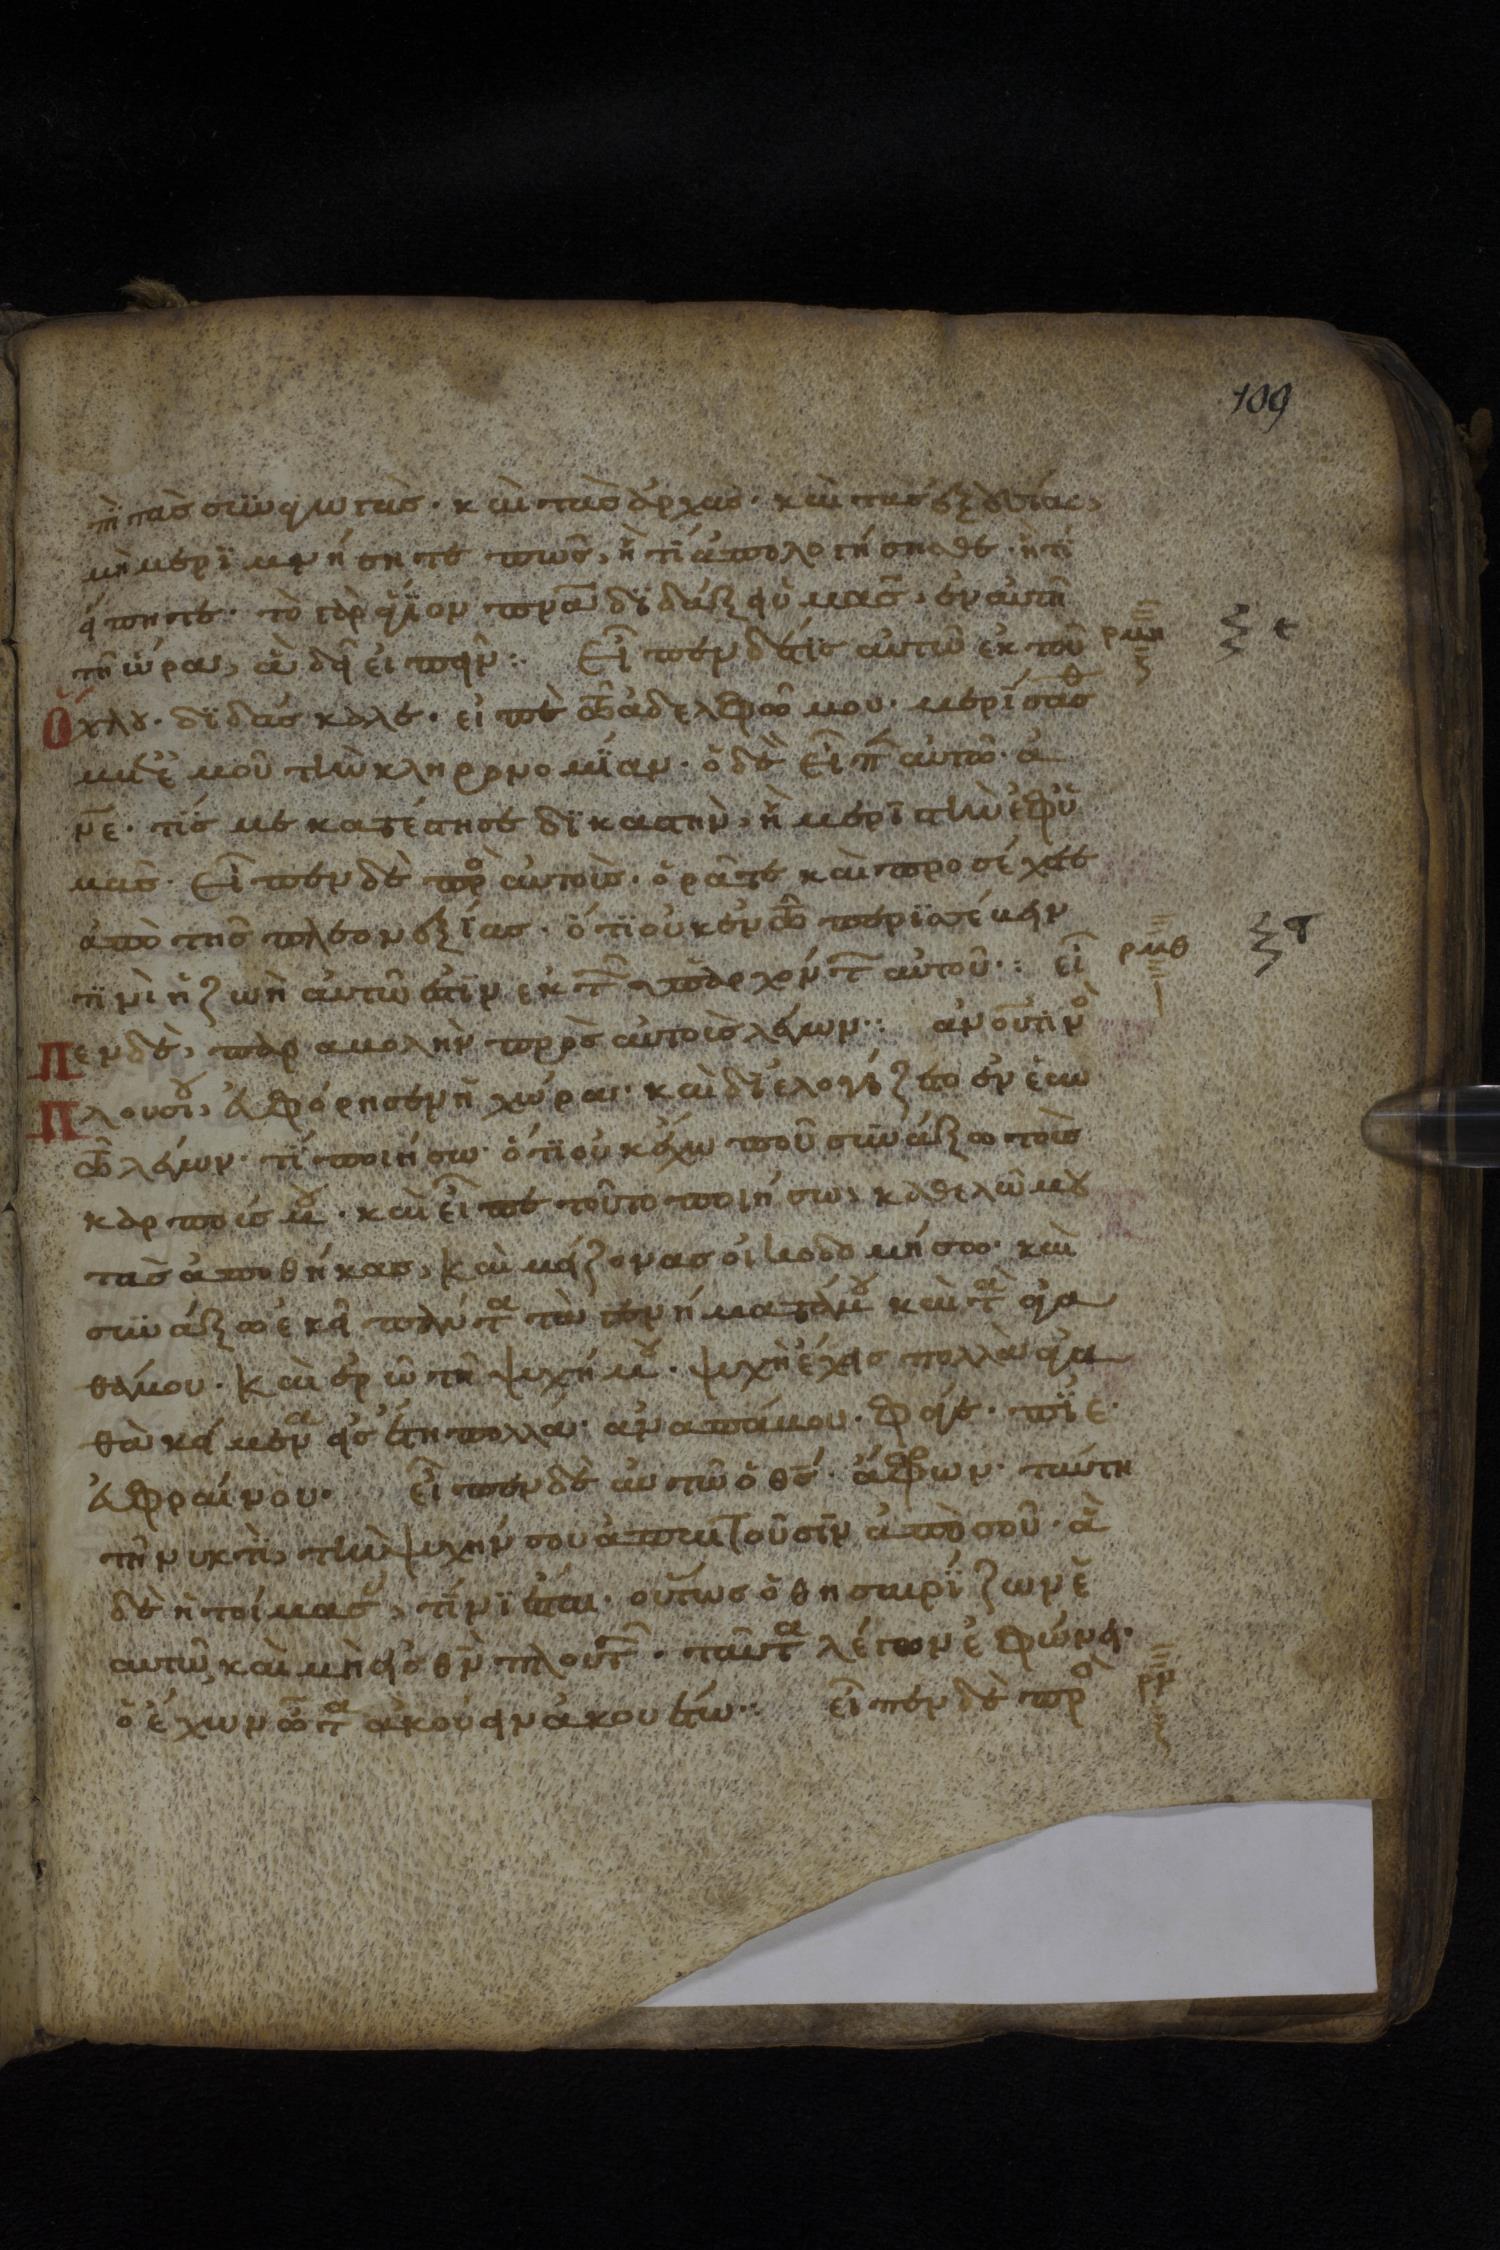 109
πὶ τὰς συναγωγὰς· καὶ τὰς ἀρχὰς· καὶ τὰς ἐξουσίας,
μὴ μεριμνήσητε πῶς, ἢ τί ἀπολογήσησθε· ἢ τί
εἴπητε· τὸ γὰρ ἅγιον πνα διδάξει ὑμᾶς, ἐν αὐτῆ
τῆ ὥρα, ἃ δεῖ εἰπεῖν:· Εἶπεν δέ τις αὐτῶ ἐκ τοῦ ρμη ξε
ὄχλου· διδάσκαλε· εἰπὲ τῶ ἀδελφῶ μου· μερίσασθ
μετ' ἐμοῦ τὴν κληρονομίαν· ὁ δὲ εἶπ αὐτῶ· ἀ
νε· τίς με κατέστησε δικαστὴν, ἢ μεριστὴν ἐφ' ὑ
μᾶς· Εἶπεν δὲ πρ αὐτοὺς· ὁρᾶτε καὶ προσέχετε
ἀπὸ τῆς πλεονεξίας· ὅτι οὐκ ἐν τῶ περισσεύειν
τινὶ ἡ ζωὴ αὐτῶ ἐστὶν ἐκ τ ὑπαρχόντ αὐτοῦ:· εἶ ρμθ
πεν δὲ, παραβολὴν πρὸς αὐτοὺς λέγων:· ανου τιν
πλουσίου, εὐφόρησεν ἡ χώρα· καὶ διελογίζετο ἐν ἑαυ
τῶ λέγων· τί ποιήσω· ὅτι οὐκ ἔχω ποῦ συνάξω τοὺς
καρπούς μου· καὶ εἶπε τοῦτο ποιήσω, καθελῶ μου
τὰς ἀποθήκας, καὶ μείζονας οἰκοδομήσω· καὶ
συνάξω ἐκεῖ πάντα τὰ γενήματά μου καὶ τὰ ἀγα
θά μου· καὶ ἐρῶ τῆ ψυχῆ μου· ψυχὴ ἔχεις πολλὰ ἀγα
θὰ κείμενα εἰς ἔτη πολλά· ἀναπάυου· φάγε· πίε·
εὐφραίνου· εἶπεν δὲ αὐτῶ ὁ θς· ἄφρων· ταύτη
τῆ νυκτὶ, τὴν ψυχήν σου ἀπαιτοῦσιν ἀπὸ σοῦ· ἃ
δὲ ἡτοίμασας, τίνι ἔσται· οὕτως ὁ θησαυρίζων ἑ
αυτῶ καὶ μὴ εἰς θν πλουτ· ταῦτα λέγων ἐφώνει·
ὁ ἔχων ὦτα ἀκούειν ἀκουέτω:· εἶπεν δὲ πρ ρν